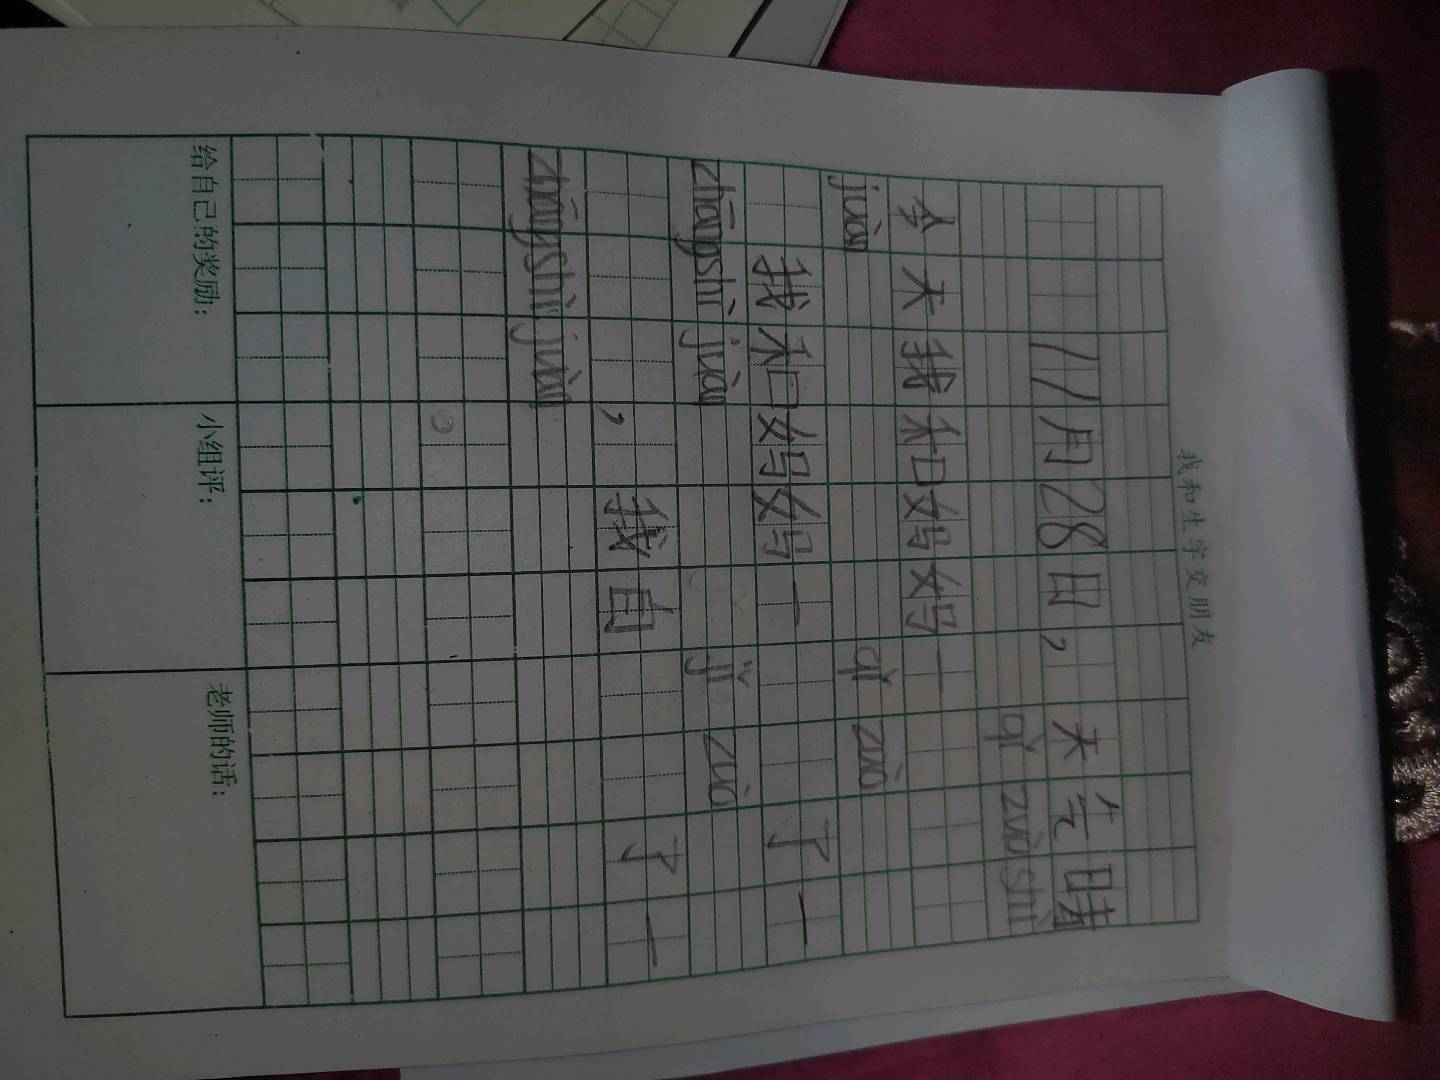 我和生字交朋友
11月28日，天先晴
qǐ zuò shì
今天我和妈妈一
juàn qǐ zuò
我和妈妈一 了一
zhāng shì juàn jǐ zuò
，我自 了一
zhāng shì juàn
。
给自己的奖励： 小组评： 老师的话：